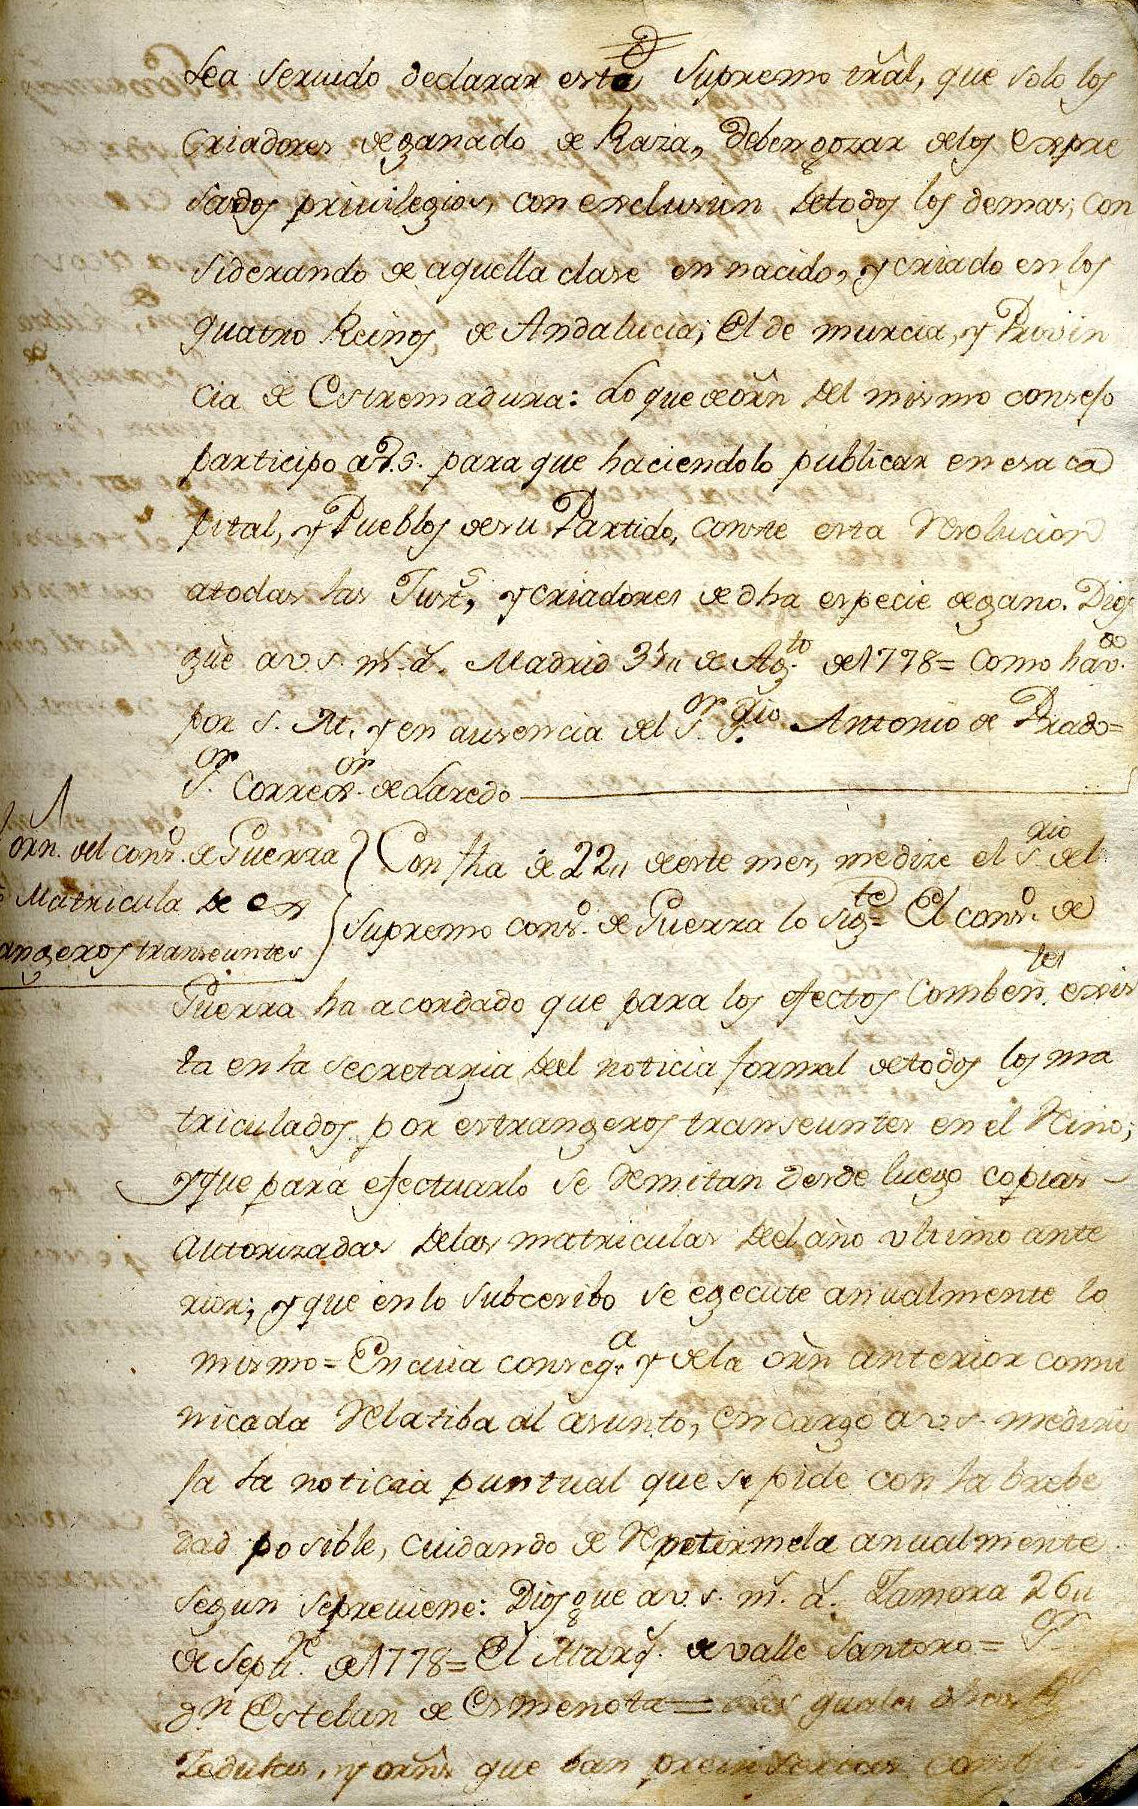 sea seruido declarar este Supremo trâl, que solo los
Criadores deganado de Raza, deben gozar delos Expre
sados priuilegios, con exclusion detodos los demas; con
siderando de aquella clase en nacido, y criado en los
quatro Reinos de Andalucia; el de murcia, y Provin
cia de Estremadura: Lo que de orñ del mismo consejo
participo a V.S. para que haciendolo publicar en esa ca
pital, y Pueblos de su Partido, conste esta resolucion
atodas las Just.s, y criadores de dha especie de gano. Dios
gûe a v. s. m.s a.s Madrid 31,, de Ag.to de 1778 = como havdo.
por S. M. y en ausencia del S.or S.rio Antonio de Prado=
S.or Corre.or de Laredo
orn. del cons.o de Guerra
Matricula de ex
angeros transeuntes
Con fha de 22,, de este mes, me dize el S.rio del
Supremo cons.o de Guerra lo sig.te = El cons.o de
Guerra ha acordado que para los efectos Comben.tes exis
ta en la secretaria del noticia formal detodos los ma
triculados por estrangeros transeuntes en el Reino;
y que para efectuarlo se remitan desde luego copias
autorizadas delas matriculas del año ultimo ante
rior; y que en lo subcesibo se egecute anualmente lo
mismo = En cuia conseq.a y dela orñ anterior comu
nicada relatiba al asunto, encargo a v. s. me diri
ja la noticia puntual que se pide con la brebe
dad posible, cuidando de repetirmela anualmente
segun se preuiene: Dios gue a v. s. m.s a.s Zamora 26,,
de Sept.re de 1778 = El Marq.s de valle santoro = S.or
d.n Esteban de Esmenota = guales dhas R.s
Zedulas, y orñs que ban preinsertas